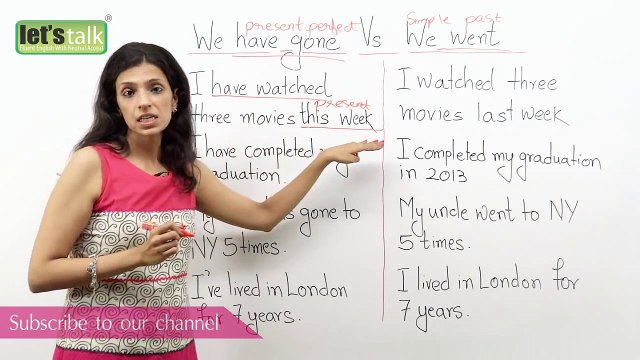 let's talk®
Fluent English With Neutral Accent
present perfect
We have gone Vs
I have watched
present
three movies this week
I have completed
graduation.
gone to
NY 5 times.
I've lived in London
for 7 years.
simple past
We went
I watched three
movies last week
I completed my graduation
in 2013
My uncle went to NY
5 times.
I lived in London for
7 years.
Subscribe to our channel